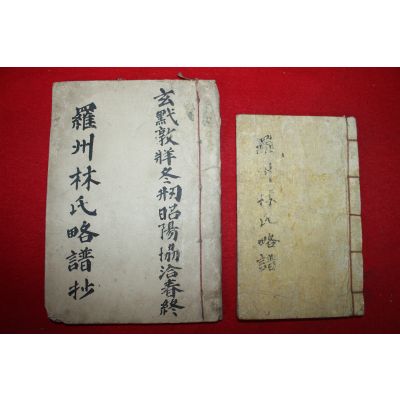 玄黓敦牂冬刱昭陽協洽春終
羅州林氏略譜抄
羅州林氏略譜